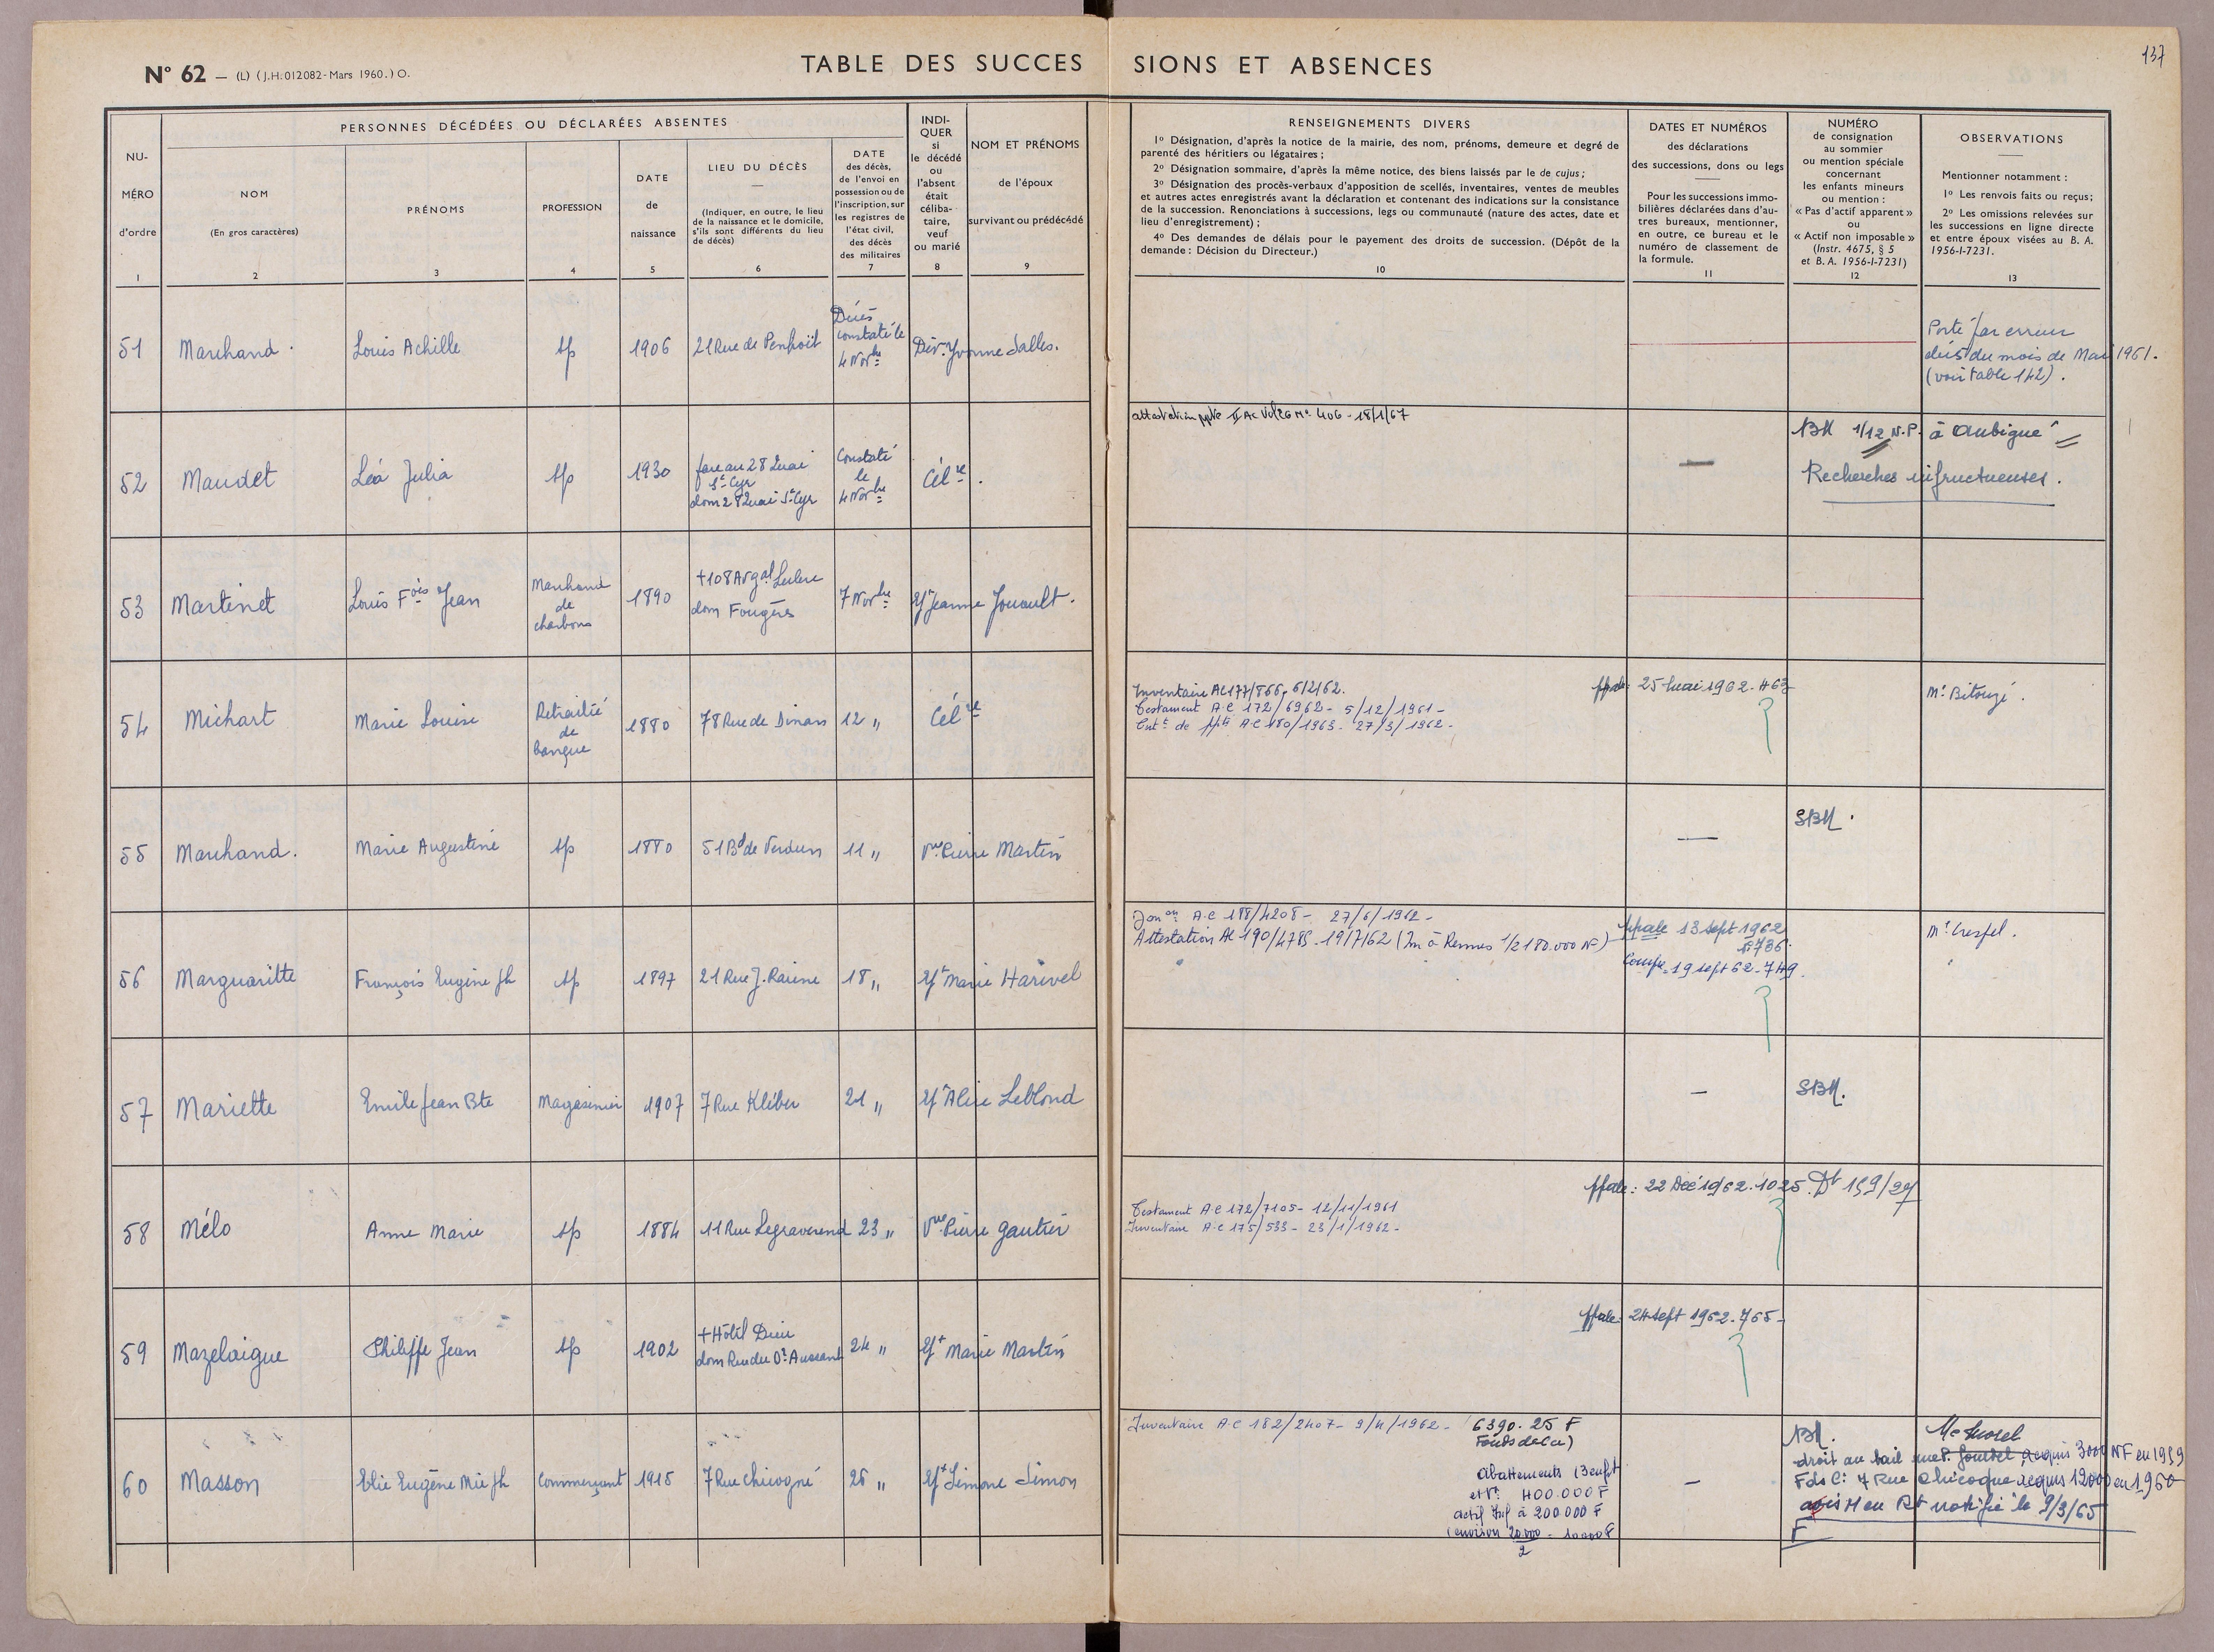 N° 62 — (L) (J.H. 012082 - Mars 1960.) O.
TABLE DES SUCCES SIONS ET ABSENCES
137
PERSONNES DÉCÉDÉES OU DÉCLARÉES ABSENTES
NU-
MÉRO
d'ordre
1
NOM
(En gros caractères)
2
PRÉNOMS
3
PROFESSION
4
DATE
de
naissance
5
LIEU DU DÉCÈS
(Indiquer, en outre, le lieu
de la naissance et le domicile,
s'ils sont différents du lieu
de décès)
6
DATE
des décès,
de l'envoi en
possession ou de
l'inscription, sur
les registres de
l'état civil,
des décès
des militaires
7
INDI-
QUER
si
le décédé
ou
l'absent
était
céliba-
taire,
veuf
ou marié
8
NOM ET PRÉNOMS
de l'époux
survivant ou prédécédé
9
RENSEIGNEMENTS DIVERS
1° Désignation, d'après la notice de la mairie, des nom, prénoms, demeure et degré de
parenté des héritiers ou légataires ;
2° Désignation sommaire, d'après la même notice, des biens laissés par le de cujus ;
3° Désignation des procès-verbaux d'apposition de scellés, inventaires, ventes de meubles
et autres actes enregistrés avant la déclaration et contenant des indications sur la consistance
de la succession. Renonciations à successions, legs ou communauté (nature des actes, date et
lieu d'enregistrement) ;
4° Des demandes de délais pour le payement des droits de succession. (Dépôt de la
demande : Décision du Directeur.)
10
DATES ET NUMÉROS
des déclarations
des successions, dons ou legs
Pour les successions immo-
bilières déclarées dans d'au-
tres bureaux, mentionner,
en outre, ce bureau et le
numéro de classement de
la formule.
11
NUMÉRO
de consignation
au sommier
ou mention spéciale
concernant
les enfants mineurs
ou mention :
« Pas d'actif apparent »
ou
« Actif non imposable »
(Instr. 4675, § 5
et B. A. 1956-I-7231)
12
OBSERVATIONS
Mentionner notamment :
1° Les renvois faits ou reçus;
2° Les omissions relevées sur
les successions en ligne directe
et entre époux visées au B. A.
1956-I-7231.
13
51 Marchand. Louis Achille sp 1906 21 Rue de Penhoët
Décès
constaté le
4 Novbre
Div. Yvonne Salles.
Porté par erreur
décès du mois de Mai 1961.
(voir table 142).
52 Maudet Léa Julia sp 1930
face au 28 Quai
St Cyr
dom 28 Quai St Cyr
Constaté
le
4 Novbre
Célre.
attestation ppté II AC Vol 26 N° 406 - 18/1/67
—
BM 1/12 N.P. à Aubigné
Recherches infructueuses.
53 Martinet Louis Fois Jean
Marchand
de
charbons
1890
+ 108 Av gal Leclerc
dom Fougères
7 Novbre Ex Jeanne Jouault.
54 Michart Marie Louise
Retraitée
de
banque
1880 78 Rue de Dinan 12 " Célre
Inventaire AC 177/866, 6/2/62.
Testament A.C 172/6962 - 5/12/1961 -
Cert. de ppté A.C 180/1963 - 27/3/1962 -
ppale: 25 Mai 1962. 463
Me Bitouzé.
55 Marchand. Marie Augustine sp 1880 51 Bd de Verdun 11 " Vve Pierre Martin
—
SBM.
56 Marguaritte François Eugène Jh sp 1897 21 Rue J. Racine 18 " Ex Marie Harivel
Donon A.C 188/4208 - 27/6/1962 -
Attestation AC 190/4785 - 19/7/62 (Im à Rennes 1/2 180.000 NF)
ppale 13 Sept 1962
N° 736
Compl. 19 sept 62. 749.
Me Crespel.
57 Mariette Emile Jean Bte Magasinier 1907 7 Rue Kléber 21 " Ex Alice Leblond
—
SBM.
58 Mélo Anne Marie sp 1884 11 Rue Legraverend 23 " Vve Pierre Gautier
Testament A.C 172/7105 - 12/11/1961
Inventaire A.C 175/533 - 23/1/1962 -
ppale: 22 Déc 1962. 1025. Dt 159/27
59 Mazelaigue Philippe Jean sp 1902
+ Hôtel Dieu
dom Rue du Dr Aussant
24 " Ex Marie Martin
ppale: 24 Sept 1962. 765 -
60 Masson Elie Eugène Mie Jh Commerçant 1915 7 Rue Chicogné 25 " Ex Simone Simon
Inventaire A.C 182/2407 - 9/4/1962 -
6390.25 F
Fonds de Cce)
abattements (3 enfts
400.000 F
actif inf à 200000 F
(environ 20.000 - 10000 F
2
—
NM.
droit au bail acquis 3000 NF en 1959
Fds C: 7 Rue Chicogné acquis 12000 en 1960
notifié le 9/3/65
F